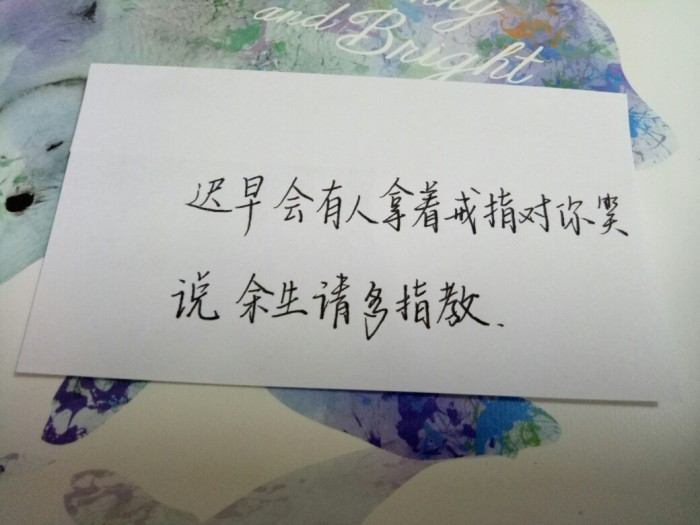 and Bright
迟早会有人拿着戒指对你笑
说 余生请多指教.